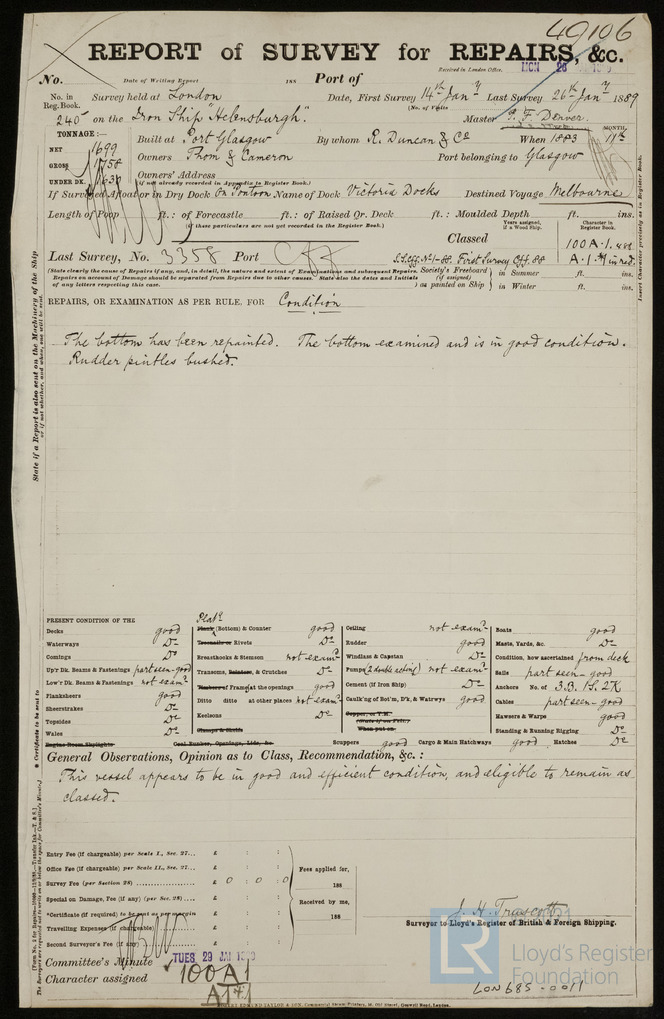 49106
REPORT of SURVEY for REPAIRS, &c.
Received in London Office.
No. Date of Writing Report 188 Port of
No. in Reg. Book. Survey held at London Date, First Survey 14th Jany Last Survey 26th Jany 1889
(No. of Visits
240 on the Iron Ship "Helensburgh". Master
TONNAGE:— Built at Port Glasgow By whom R. Duncan & Co When 1883 MONTH. 11th
NET 1699
GROSS 1758 Owners Thom & Cameron Port belonging to Glasgow
UNDER DK. 1630 Owners' Address
(if not already recorded in Appendix to Register Book.)
If Surveyed Afloat or in Dry Dock On Pontoon Name of Dock Victoria Docks Destined Voyage Melbourne
Length of Poop ft.: of Forecastle ft.: of Raised Qr. Deck ft.: Moulded Depth ft. ins.
(if these particulars are not yet recorded in the Register Book.)
Years assigned, if a Wood Ship. Character in Register Book.
Classed 100 A.1.
Last Survey, No. 3358 Port S.S.Cff. No 1-88. First Survey Cff. 88 A.1. in red.
(State clearly the cause of Repairs if any, and, in detail, the nature and extent of Examinations and subsequent Repairs. Society's Freeboard in Summer ft. ins.
Repairs on account of Damage should be separated from Repairs due to other causes. State also the dates and Initials (if assigned)
of any letters respecting this case. ) as painted on Ship in Winter ft. ins.
REPAIRS, OR EXAMINATION AS PER RULE, FOR Condition
The bottom has been repainted. The bottom examined and is in good condition.
Rudder pintles bushed.
PRESENT CONDITION OF THE
Decks good
Waterways Do
Comings Do
Up'r Dk. Beams & Fastenings part seen - good
Low'r Dk. Beams & Fastenings not examd
Planksheers good
Sheerstrakes Do
Topsides Do
Wales Do
Engine Room Skylights
Platg
Plank (Bottom) & Counter good
Treenails or Rivets Do
Breasthooks & Stemson not examd
Transoms, Pointers, & Crutches Do
Timbers of Frame at the openings good
Ditto ditto at other places not examd
Keelsons Do
Clamps & Shelfs
Coal Bunker, Openings, Lids, &c.
Ceiling not examd
Rudder good
Windlass & Capstan Do
Pumps (2 double acting) not examd
Cement (if Iron Ship) Do
Caulk'ng of Bot'm, D'k, & Watrwys good
Copper, or Y.M.
(State if on Felt)
When put on
Scuppers good Cargo & Main Hatchways good Hatches Do
Boats good
Masts, Yards, &c. Do
Condition, how ascertained from deck
Sails part seen - good
Anchors No. of 3.B. 1S. 2K
Cables part seen - good
Hawsers & Warps good
Standing & Running Rigging Do
General Observations, Opinion as to Class, Recommendation, &c.:
This vessel appears to be in good and efficient condition, and eligible to remain as
classed.
Entry Fee (if chargeable) per Scale I., Sec. 27... £ : :
Office Fee (if chargeable) per Scale II., Sec. 27... £ : :
Survey Fee (per Section 28) £ 0 : 0 : 0
Special on Damage, Fee (if any) (per Sec. 28) £ : :
*Certificate (if required) to be sent as per margin
Travelling Expenses (if chargeable) £ : :
Second Surveyor's Fee (if any) £ : :
Fees applied for,
188
Received by me,
188
J. H. Truscott
Surveyor to Lloyd's Register of British & Foreign Shipping.
Committee's Minute TUES. 29 JAN
Character assigned 100A1
LR Lloyd's Register Foundation
LON685-0011
State if a Report is also sent on the Machinery of the Ship
or if not, whether, and when, one will be sent.
* Certificate to be sent to
Insert Character precisely as in Register Book.